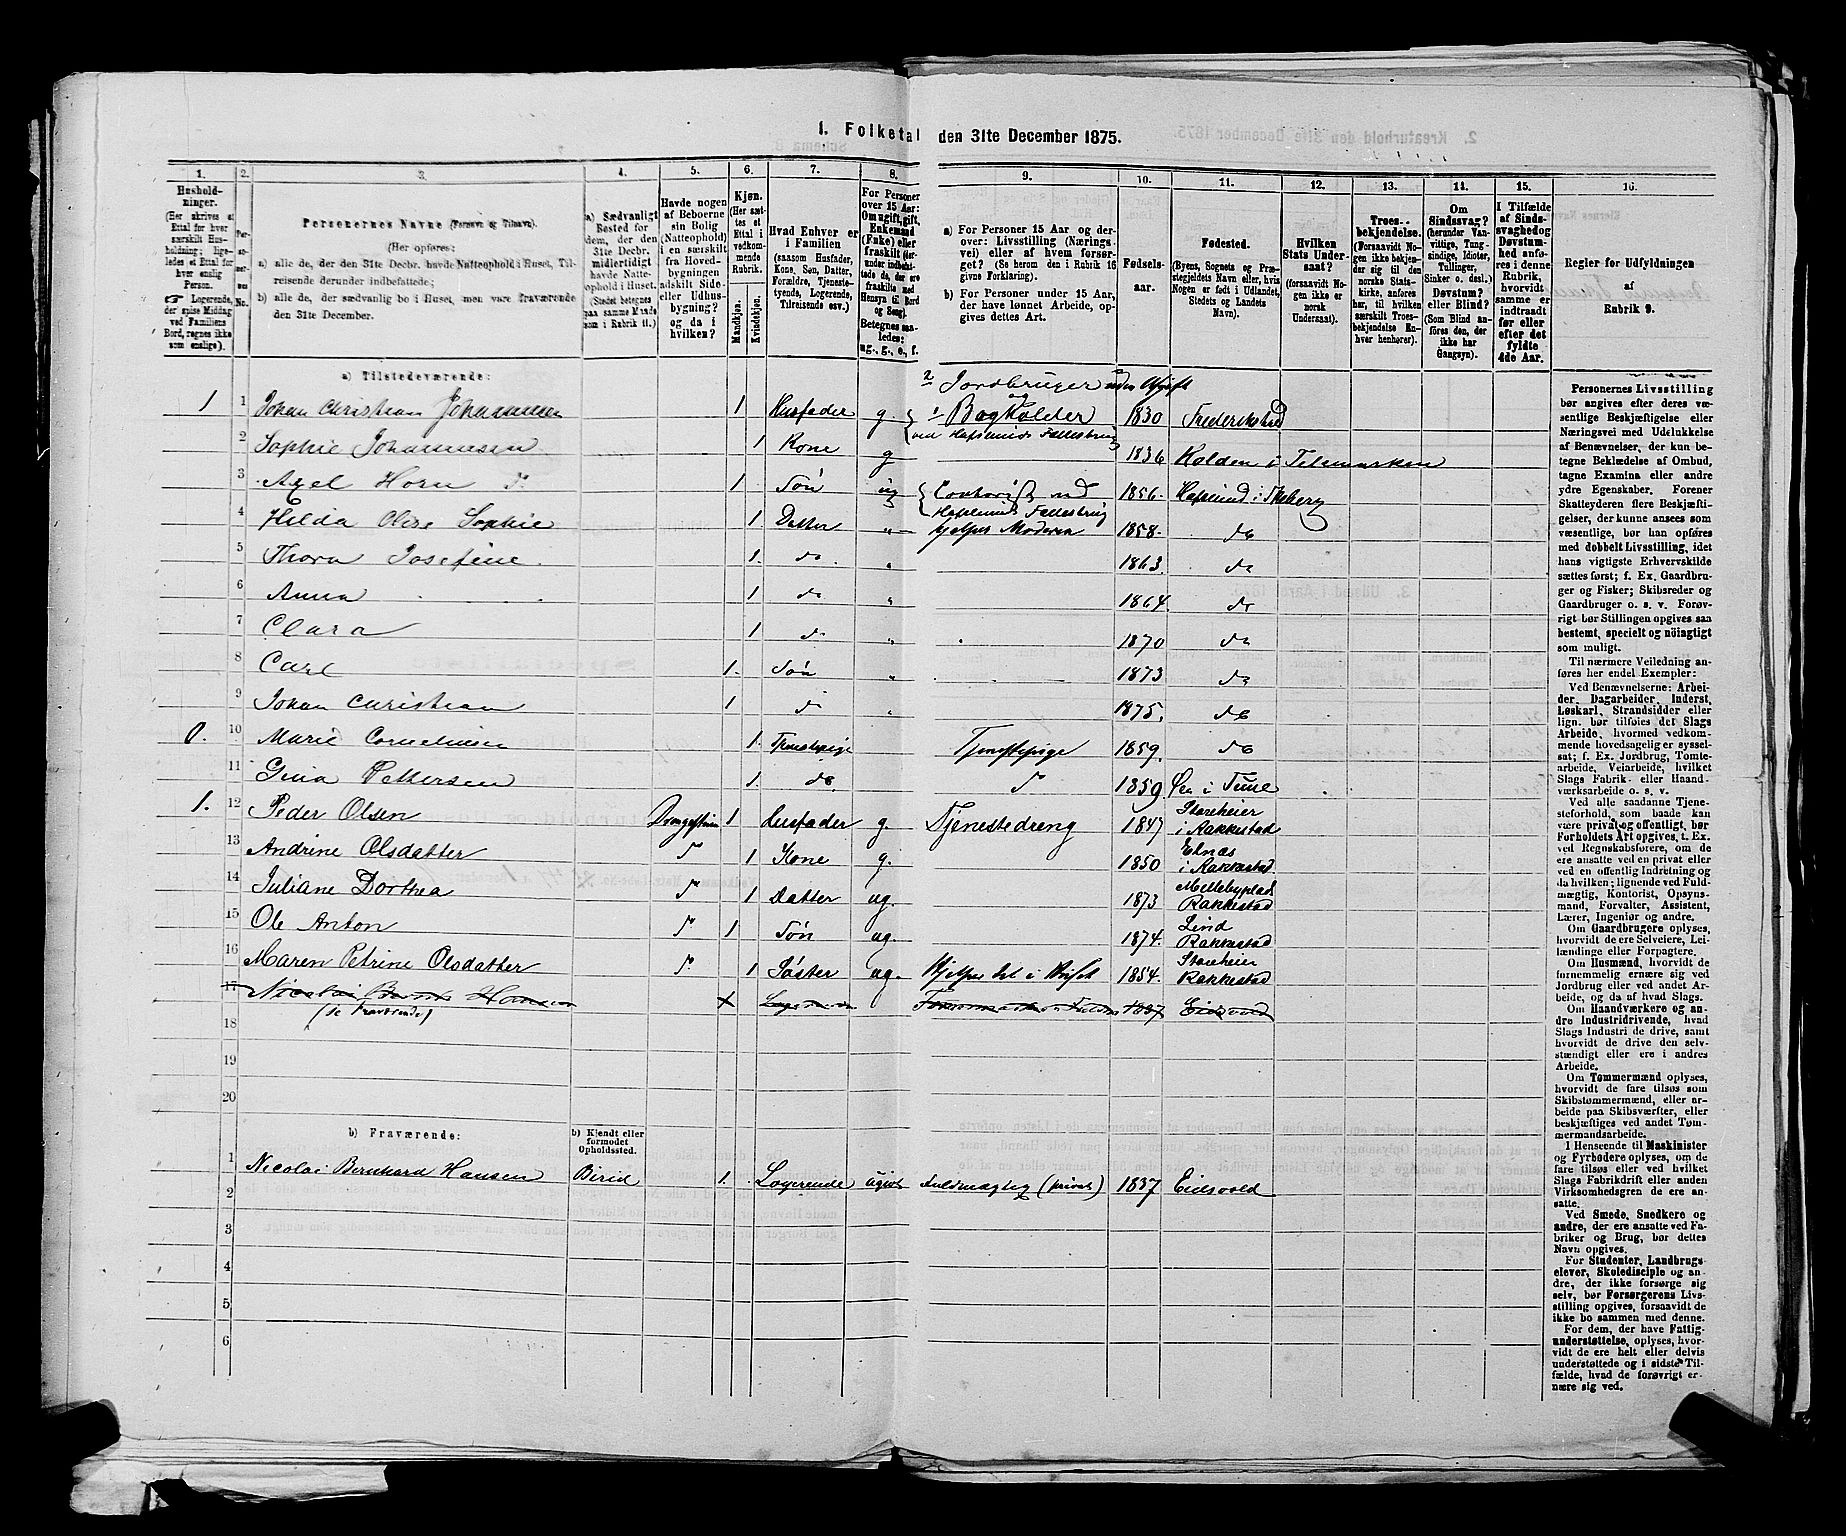 1. Folketal den 31te December 1875.
1. 2. 3. 4. 5. 6. 7. 8. 9. 10. 11. 12. 13. 14. 15. 16.
Hushold-
ninger.
(Her skrives et
Ettal for hver
særskilt Hus-
holdning; lige-
ledes et Ettal for
hver enslig
Person.
Logerende,
der spise Middag
ved Familiens
Bord, regnes ikke
som enslige).
Per-
soner-
nes
No.
Personernes Navne (Fornavn og Tilnavn).
(Her opføres:
a) alle de, der den 31te Decbr. havde Natteophold i Huset, Til-
reisende derunder indbefattede;
b) alle de, der sædvanlig bo i Huset, men vare fraværende
den 31te December.
a) Sædvanligt
Bosted for
dem, der den
31te Decbr.
midlertidigt
havde Natte-
ophold i Huset.
(Stedet betegnes
paa samme Maade
som i Rubrik 11.)
Havde nogen
af Beboerne
sin Bolig
(Natteophold)
i en særskilt
fra Hoved-
bygningen
adskilt Side-
eller Udhus-
bygning?
og da i
hvilken?
Kjøn.
(Her sæt-
tes et
Ettal i
vedkom-
mende
Rubrik.
Mandkjøn.
Kvindekjøn.
Hvad Enhver er
i Familien
(saasom Husfader,
Kone, Søn, Datter,
Forældre, Tjeneste-
tyende, Logerende,
Tilreisende osv.)
For Personer
over 15 Aar:
Om ugift, gift,
Enkemand
(Enke) eller
fraskilt (her-
under indbefat-
tede de, der ere
fraskilte med
Hensyn til Bord
og Seng).
Betegnes saa-
ledes:
ug., g., e., f.
a) For Personer 15 Aar og der-
over: Livsstilling (Nærings-
vei) eller af hvem forsør-
get? (Se herom den i Rubrik 16
givne Forklaring).
b) For Personer under 15 Aar,
der have lønnet Arbeide, op-
gives dettes Art.
Fødsels-
aar.
Fødested.
(Byens, Sognets og Præ-
stegjeldets Navn eller, hvis
Nogen er født i Udlandet,
Stedets og Landets
Navn).
Hvilken
Stats Under-
saat?
(forsaavidt No-
gen ikke er
norsk
Undersaat).
Troes-
bekjendelse.
(Forsaavidt No-
gen ikke bekjen-
der sig til den
norske Stats-
kirke, anføres
her, til hvilken
særskilt Troes-
bekjendelse En-
hver henhører).
Om
Sindssvag?
(herunder Van-
vittige, Tung-
sindige, Idioter,
Tullinger,
Sinker o. desl.)
Døvstum?
eller Blind?
(Som Blind an-
føres den, der
ikke har
Gangsyn).
I Tilfælde
af Sinds-
svaghed og
Døvstum-
hed anfø-
res i denne
Rubrik,
hvorvidt
samme er
indtraadt
før eller
efter det
fyldte
4de Aar.
Regler for Udfyldningen
af
Rubrik 9.
a) Tilstedeværende:
2 Jordbruger uden Afgift
og
1 1 Johan Christian Johannesen 1 Husfader g. 1 Bogholder 1830 Frederikstad
ved Hafslunds Fællesbrug
2 Sophie Johannesen 1 Kone g 1836 Holden i Telemarken
3 Axel Horn 1 Søn ug Contorist ved 1856. Hafslund i Skeberg
Hafslunds Fællesbrug
4 Hilda Olise Sophie 1 Datter „ hjelper Moderen 1858. do
5 Thora Josefine 1. do „ 1863. do
6 Anna 1 do „ 1864 do
7 Clara 1 do „ 1870 do
8 Carl 1. Søn „ 1873 do
9 Johan Christian 1 do „ 1875. do
0. 10 Marie Cornelius 1. Tjenestepige Tjenestepige 1859. do
11 Gina Pettersen 1. do 1859 i Tune
1. 12 Peder Olsen 1 Husfader g. Tjenestedreng 1847 Storeheier
i Rakkestad
13 Andrine Olsdatter 1 Kone g. 1850 Elnæs
i Rakkestad
14 Juliane Dorthea 1 Datter ug. 1873 Mellebyplads
Rakkestad
15 Ole Anton 1 Søn ug. 1874. Lind
Rakkestad
16 Maren Petrine Olsdatter 1 Søster ug. Hjelper til i Huset 1854. Storeheier
Rakkestad
17 Nicolai Hansen 1837 Eidsvold
(se Fraværende)
18
19
20
b) Fraværende:
b) Kjendt eller
formodet
Opholdssted.
1 Nicolai Bernhard Hansen Birid 1. Logerende ugivt Fuldmægtig (privat) 1837 Eidsvold
2
3
4
5
6
Personernes Livsstilling
bør angives efter deres væ-
sentlige Beskjæftigelse eller
Næringsvei med Udelukkelse
af Benævnelser, der kun be-
tegne Beklædelse af Ombud,
tagne Examina eller andre
ydre Egenskaber. Forener
Skatteyderen flere Beskjæfti-
gelser, der kunne ansees som
væsentlige, bør han opføres
med dobbelt Livsstilling, idet
hans vigtigste Erhvervskilde
sættes først; f. Ex. Gaardbru-
ger og Fisker; Skibsreder og
Gaardbruger o. s. v. Forøv-
rigt bør Stillingen opgives saa
bestemt, specielt og nöiagtigt
som muligt.
Til nærmere Veiledning an-
føres her endel Exempler:
Ved Benævnelserne: Arbei-
der, Dagarbeider, Inderst,
Løskarl, Strandsidder eller
lign. bør tilføies det Slags
Arbeide, hvormed vedkom-
mende hovedsagelig er syssel-
sat; f. Ex. Jordbrug, Tomte-
arbeide, Veiarbeide, hvilket
Slags Fabrik- eller Haand-
værksarbeide o. s. v.
Ved alle saadanne Tjene-
steforhold, som baade kan
være privat og offentligt, bør
Forholdets Art opgives, t. Ex.
ved Regnskabsførere, om de
ere ansatte ved en privat eller
ved en offentlig Indretning og
da hvilken; lignende ved Fuld-
mægtig, Kontorist, Opsyns-
mand, Forvalter, Assistent,
Lærer, Ingeniør og andre.
Om Gaardbrugere oplyses,
hvorvidt de ere Selveiere, Lei-
lændinge eller Forpagtere.
Om Husmænd, hvorvidt de
fornemmelig ernære sig ved
Jordbrug eller ved andet Ar-
beide, og da af hvad Slags.
Om Haandværkere og an-
dre Industridrivende, hvad
Slags Industri de drive, samt
hvorvidt de drive den selv-
stændigt eller ere i andres
Arbeide.
Om Tømmermænd oplyses,
hvorvidt de fare tilsøs som
Skibstømmermænd, eller ar-
beide paa Skibsværfter, eller
beskjæftiges ved andet Tøm-
mermandsarbeide.
I Henseende til Maskinister
og Fyrbødere oplyses, om de
fare tilsøs eller ved hvilket
Slags Fabrikdrift eller anden
Virksomhedsgren de ere an-
satte.
Ved Smede, Snedkere og
andre, der ere ansatte ved Fa-
briker og Brug, bør dettes
Navn opgives.
For Studenter, Landbrugs-
elever, Skoledisciple og an-
dre, der ikke forsørge sig
selv, bør Forsørgerens Livs-
stilling opgives, forsaavidt de
ikke bo sammen med denne.
For dem, der have Fattig-
understøttelse, oplyses, hvor-
vidt de ere helt eller delvis
understøttede og i sidste Til-
fælde, hvad de forøvrigt er-
nære sig ved.